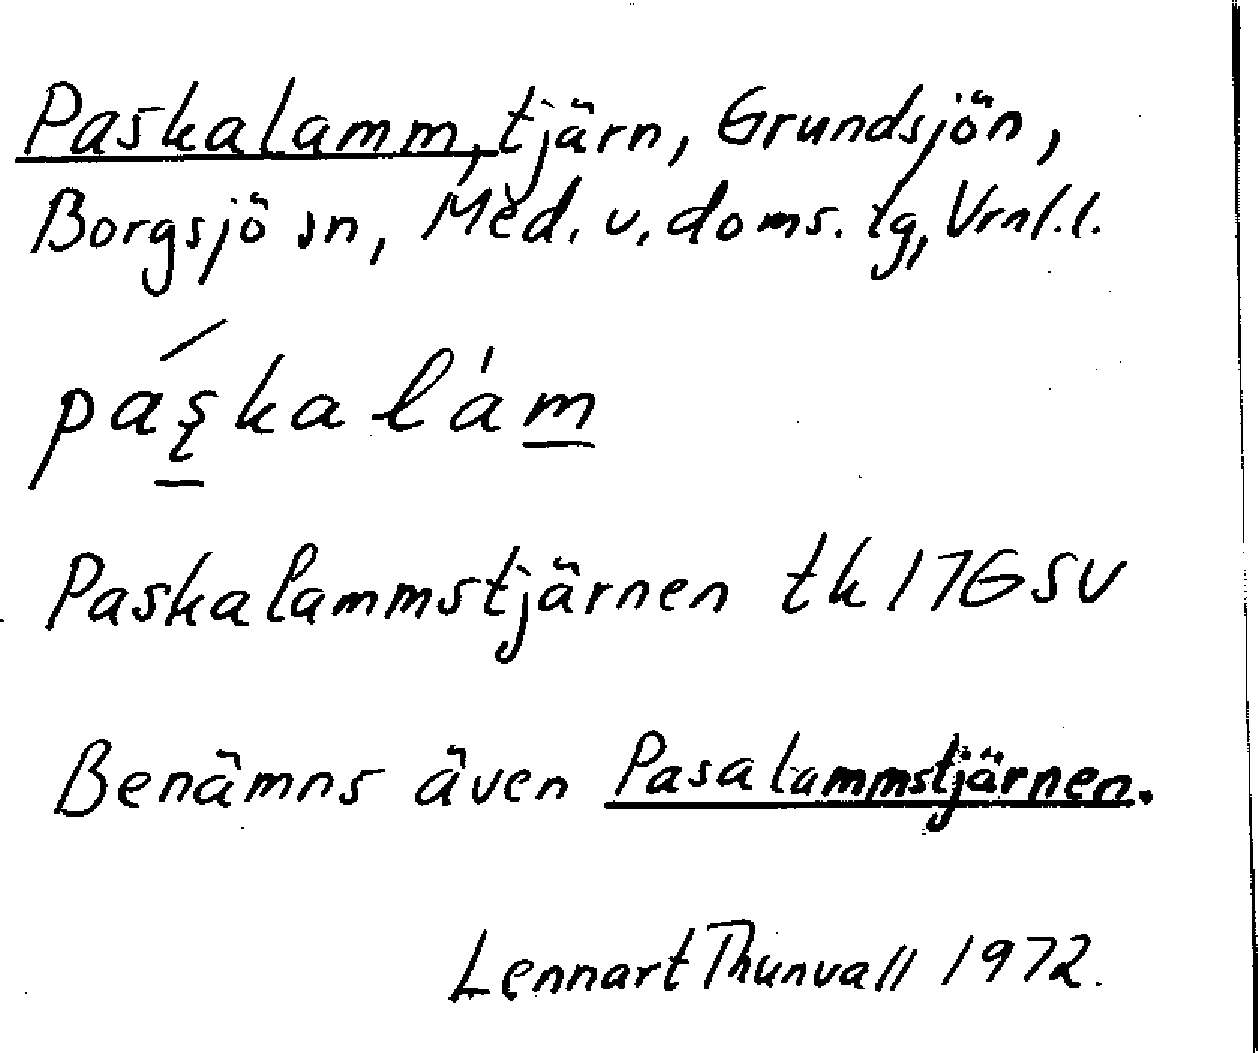 Paskalamm, tjärn, Grundsjön,
Borgsjö sn, Med. v. doms. lg, Vrnl.l.
páskalám
Paskalammstjärnen tk 17G SV
Benämns även Pasalammstjärnen.
Lennart Thunvall 1972.